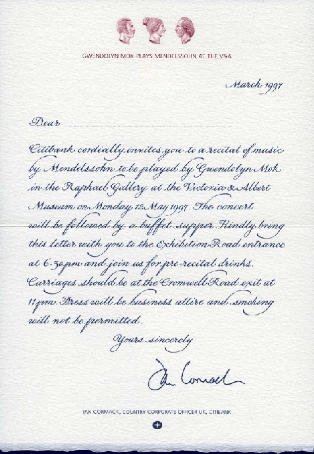 GWENDOLYN MOK PLAYS MENDELSSOHN AT THE V&A
March 1997
Dear
Citibank cordially invites you to a recital of music
by Mendelssohn to be played by Gwendolyn Mok
in the Raphael Gallery at the Victoria & Albert
Museum on Monday 12 May 1997. The concert
will be followed by a buffet supper. Kindly bring
this letter with you to the Exhibition Road entrance
at 6.30pm and join us for pre-recital drinks.
Carriages should be at the Cromwell Road exit at
11pm. Dress will be business attire and smoking
will not be permitted.
Yours sincerely
Ian Cormack
IAN CORMACK, COUNTRY CORPORATE OFFICER UK, CITIBANK